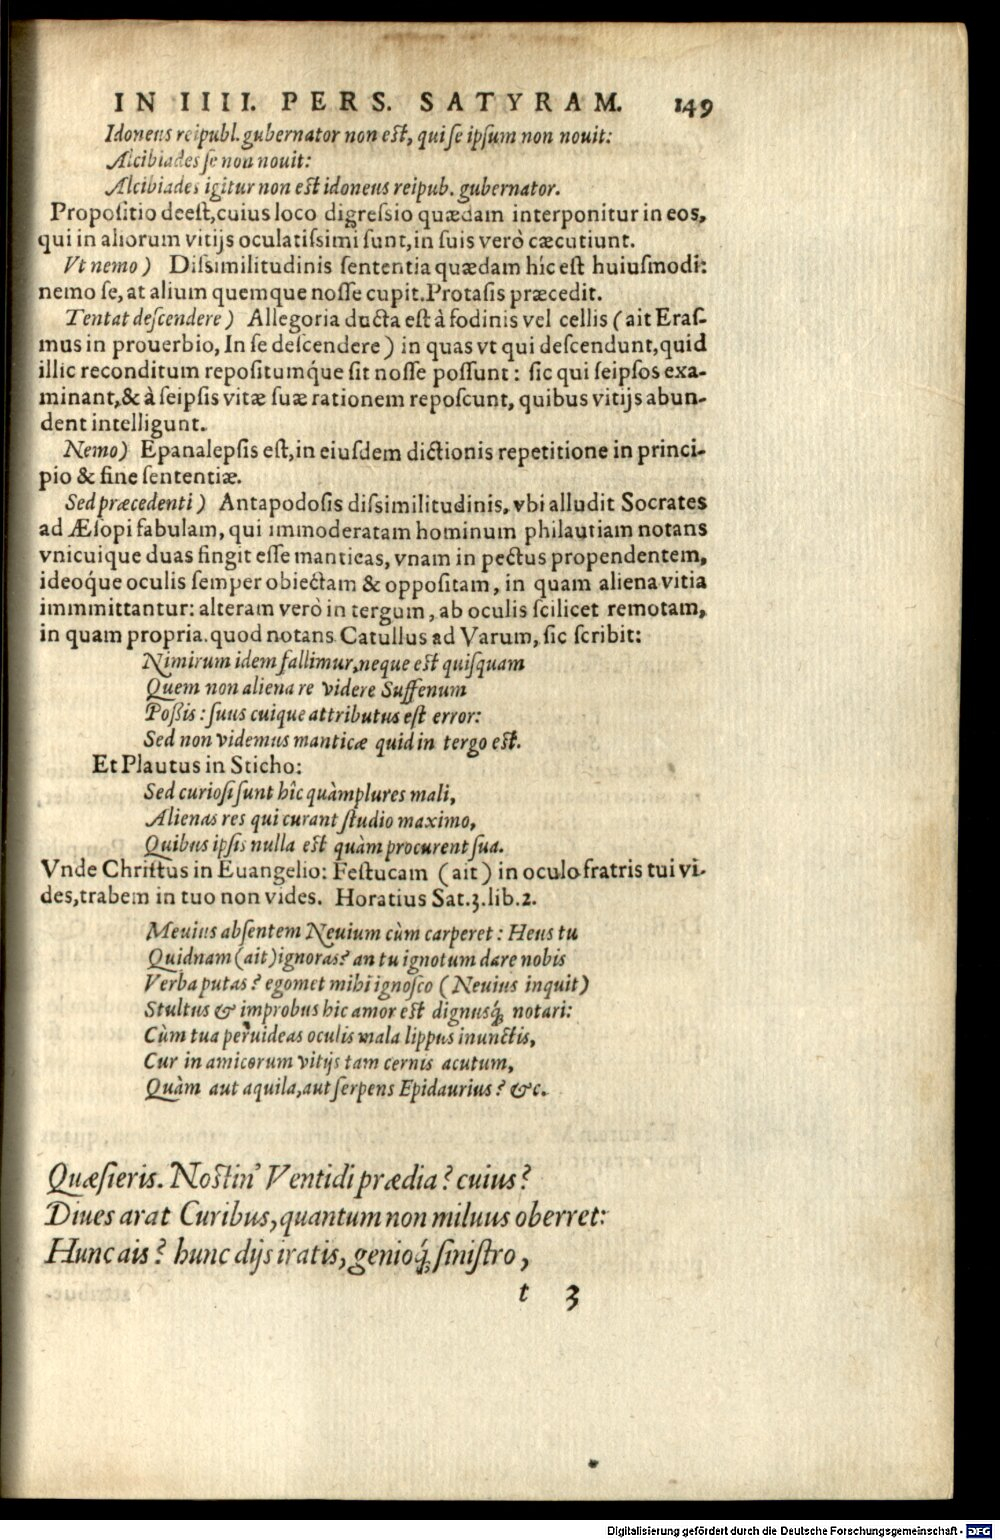 IN IIII. PERS. SATYRAM. 149
Idoneus reipubl. gubernator non est, qui se ipsum non nouit:
Alcibiades se non nouit:
Alcibiades igitur non est idoneus reipub. gubernator.
Propositio deest, cuius loco digressio quædam interponitur in eos,
qui in aliorum vitijs oculatissimi sunt, in suis verò cæcutiunt.
Vt nemo) Dissimilitudinis sententia quædam hîc est huiusmodi:
nemo se, at alium quemque nosse cupit. Protasis præcedit.
Tentat descendere) Allegoria ducta est à fodinis vel cellis (ait Eras-
mus in prouerbio, In se descendere) in quas vt qui descendunt, quid
illic reconditum repositumque sit nosse possunt: sic qui seipsos exa-
minant, & à seipsis vitæ suæ rationem reposcunt, quibus vitijs abun-
dent intelligunt.
Nemo) Epanalepsis est, in eiusdem dictionis repetitione in princi-
pio & fine sententiæ.
Sed præcedenti) Antapodosis dissimilitudinis, vbi alludit Socrates
ad Æsopi fabulam, qui immoderatam hominum philautiam notans
vnicuique duas fingit esse manticas, vnam in pectus propendentem,
ideoq́ue oculis semper obiectam & oppositam, in quam aliena vitia
immmittantur: alteram verò in tergum, ab oculis scilicet remotam,
in quam propria. quod notans Catullus ad Varum, sic scribit:
Nimirum idem fallimur, neque est quisquam
Quem non aliena re videre Suffenum
Poßis: suus cuique attributus est error:
Sed non videmus manticæ quid in tergo est.
Et Plautus in Sticho:
Sed curiosi sunt hîc quàmplures mali,
Alienas res qui curant studio maximo,
Quibus ipsis nulla est quàm procurent sua.
Vnde Christus in Euangelio: Festucam (ait) in oculo fratris tui vi-
des, trabem in tuo non vides. Horatius Sat.3.lib.2.
Meuius absentem Neuium cùm carperet: Heus tu
Quidnam (ait) ignoras? an tu ignotum dare nobis
Verba putas? egomet mihi ignosco (Neuius inquit)
Stultus & improbus hic amor est dignusq́; notari:
Cùm tua peruideas oculis mala lippus inunctis,
Cur in amicorum vitijs tam cernis acutum,
Quàm aut aquila, aut serpens Epidaurius? &c.
Quæsieris. Nostin' Ventidi prædia? cuius?
Diues arat Curibus, quantum non miluus oberret:
Hunc ais? hunc dijs iratis, genioq́; sinistro,
t 3
Digitalisierung gefördert durch die Deutsche Forschungsgemeinschaft - DFG